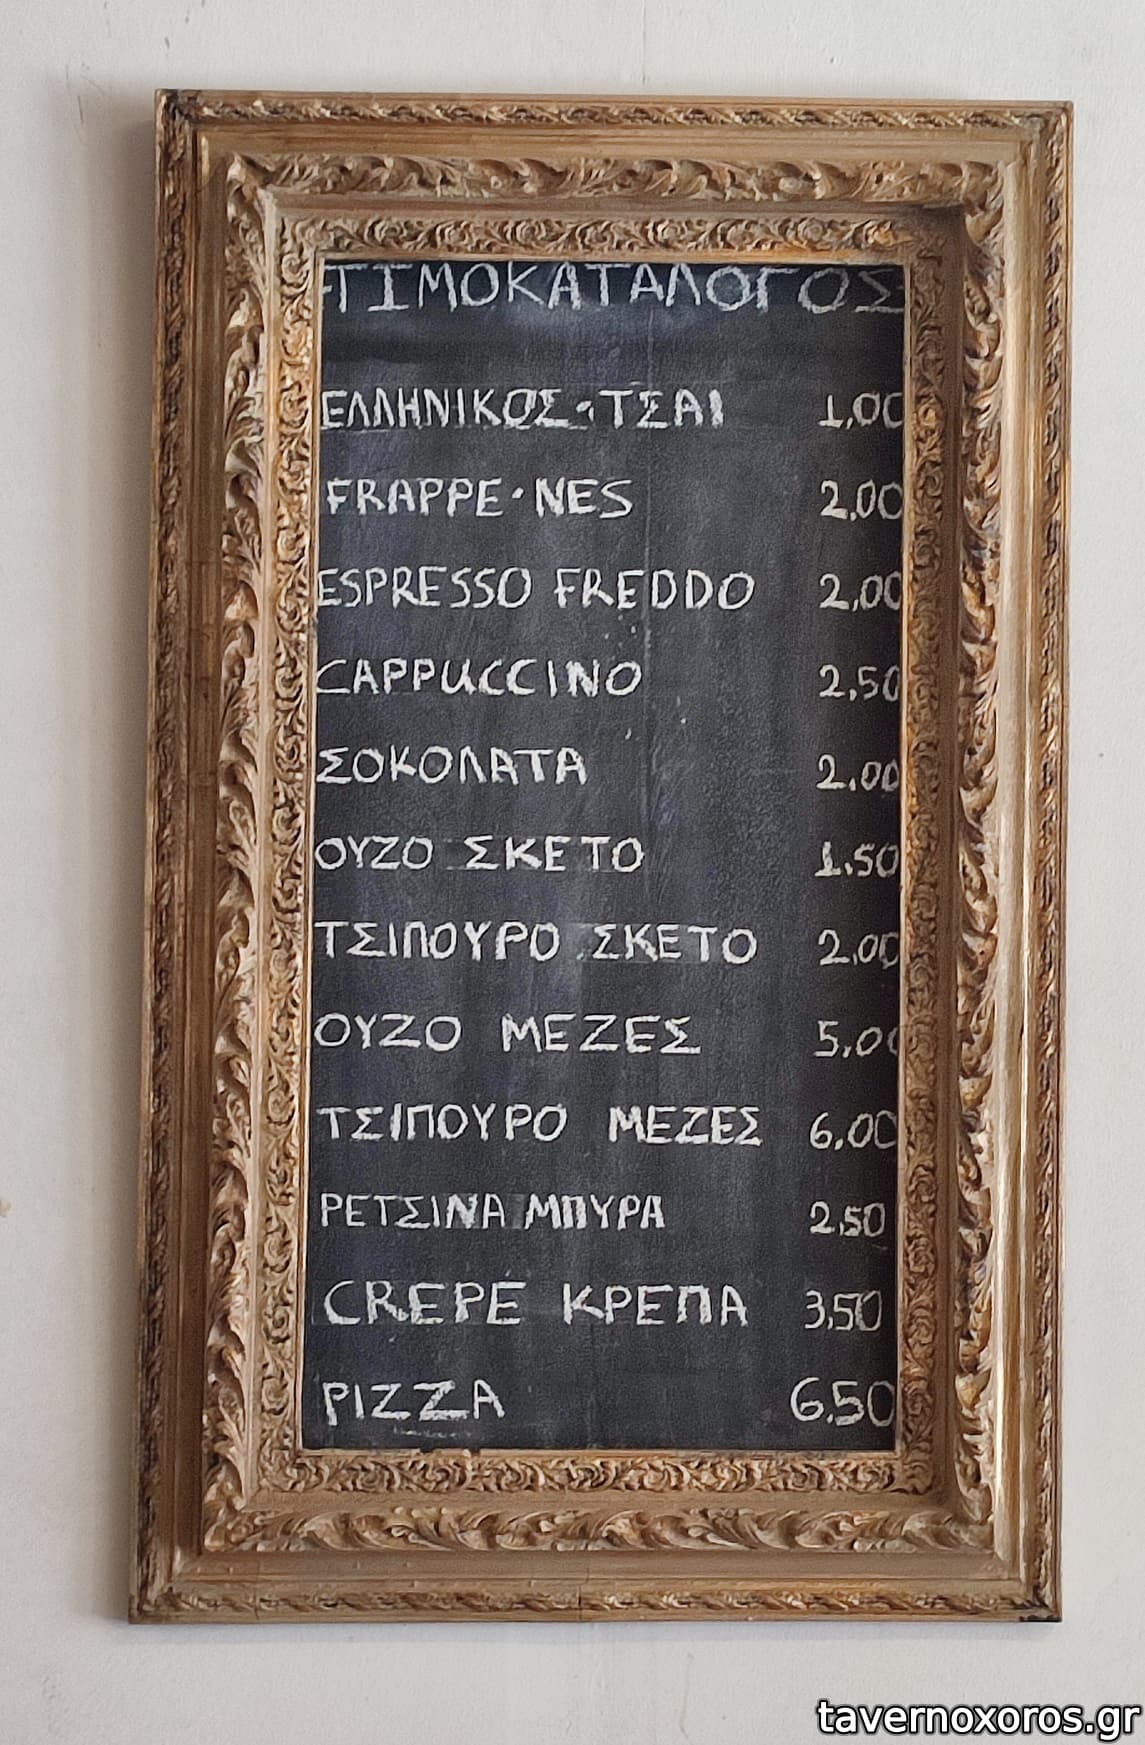 ΤΙΜΟΚΑΤΑΛΟΓΟΣ
ΕΛΛΗΝΙΚΟΣ·ΤΣΑΙ 1,00
FRAPPE·NES 2,00
ESPRESSO FREDDO 2,00
CAPPUCCINO 2,50
ΣΟΚΟΛΑΤΑ 2,00
ΟΥΖΟ ΣΚΕΤΟ 1,50
ΤΣΙΠΟΥΡΟ ΣΚΕΤΟ 2,00
ΟΥΖΟ ΜΕΖΕΣ 5,00
ΤΣΙΠΟΥΡΟ ΜΕΖΕΣ 6,00
ΡΕΤΣΙΝΑ ΜΠΥΡΑ 2,50
CREPE ΚΡΕΠΑ 3,50
PIZZA 6,50
tavernoxoros.gr